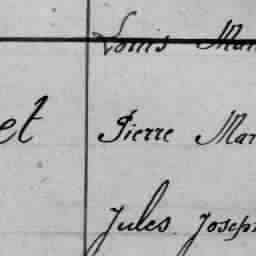 Louis Mar
et Pierre Mar
Jules Joseph